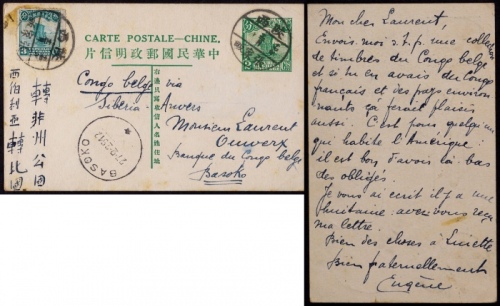 CARTE POSTALE—CHINE.
片信明政郵國民華中
Congo belge via
Siberia-Anvers
Monsieur Laurent
Ouwerx
Banque du Congo belge
Basoko
轉非州公國
西伯利亞轉比國
BASOKO
Mon cher Laurent,
Envois moi s.t.p. une collection
de timbres du Congo belge
et si tu en avais du Congo
français et des pays environ
nants ça ferait plaisir
aussi. C'est pour quelqu'un
qui habite l'Amérique:
il est bon d'avoir là-bas
des obligés.
Je vous ai écrit il y a une
huitaine: avez vous reçu
ma lettre.
Bien des choses à Linette
Bien fraternellement
Eugène